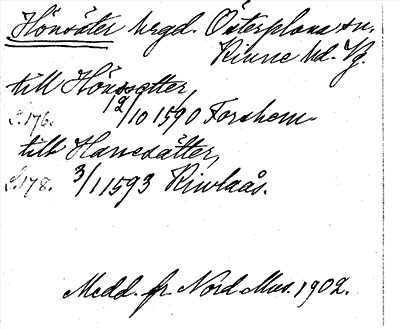 Hönsäter hrgd. Österplana sn.
Kinne hd. Vg.
till Hönssetter,
S. 176. 12/10 1590 Forshem.
till Hanesätter,
S. 178. 3/1 1593 Riwlaås.
Medd. fr Nord. Mus. 1902.